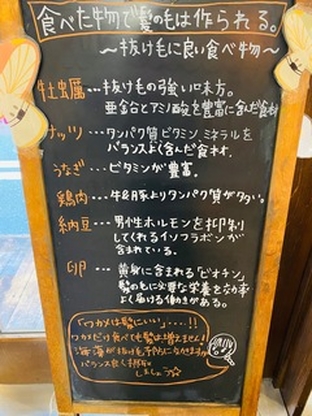 食べた物で髪の毛は作られる。
〜抜け毛に良い食べ物〜
牡蛎…抜け毛の強い味方。
亜鉛とアミノ酸を豊富に含んだ食材
ナッツ…タンパク質ビタミン ミネラルを
バランスよく含んだ食材.
うなぎ…ビタミンが豊富。
鶏肉…牛&豚よりタンパク質が多い。
納豆…男性ホルモンを抑制
してくれるイソフラボンが
含まれている.
卵…黄身に含まれる「ビオチン」
髪のもに必要な栄養を効率
よく届ける働きがある。
「ワカメは髪にいい」‥‥!!
ワカメだけ食べても髪は増えません!
海藻が抜け毛予防につながりますが
バランス良く摂取
しましょう☆